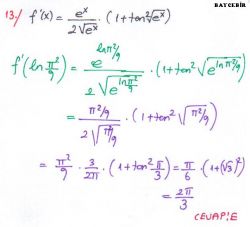 BAYCEBİR
13-) f'(x) = e^x / 2√e^x · (1+tan²√e^x)
f'(ln π²/9) = e^(ln π²/9) / 2√e^(ln π²/9) · (1+tan²√e^(ln π²/9))
= π²/9 / 2√π²/9 · (1+tan²√π²/9)
= π²/9 · 3/2π · (1+tan² π/3) = π/6 · (1+(√3)²)
= 2π/3
CEVAP: E